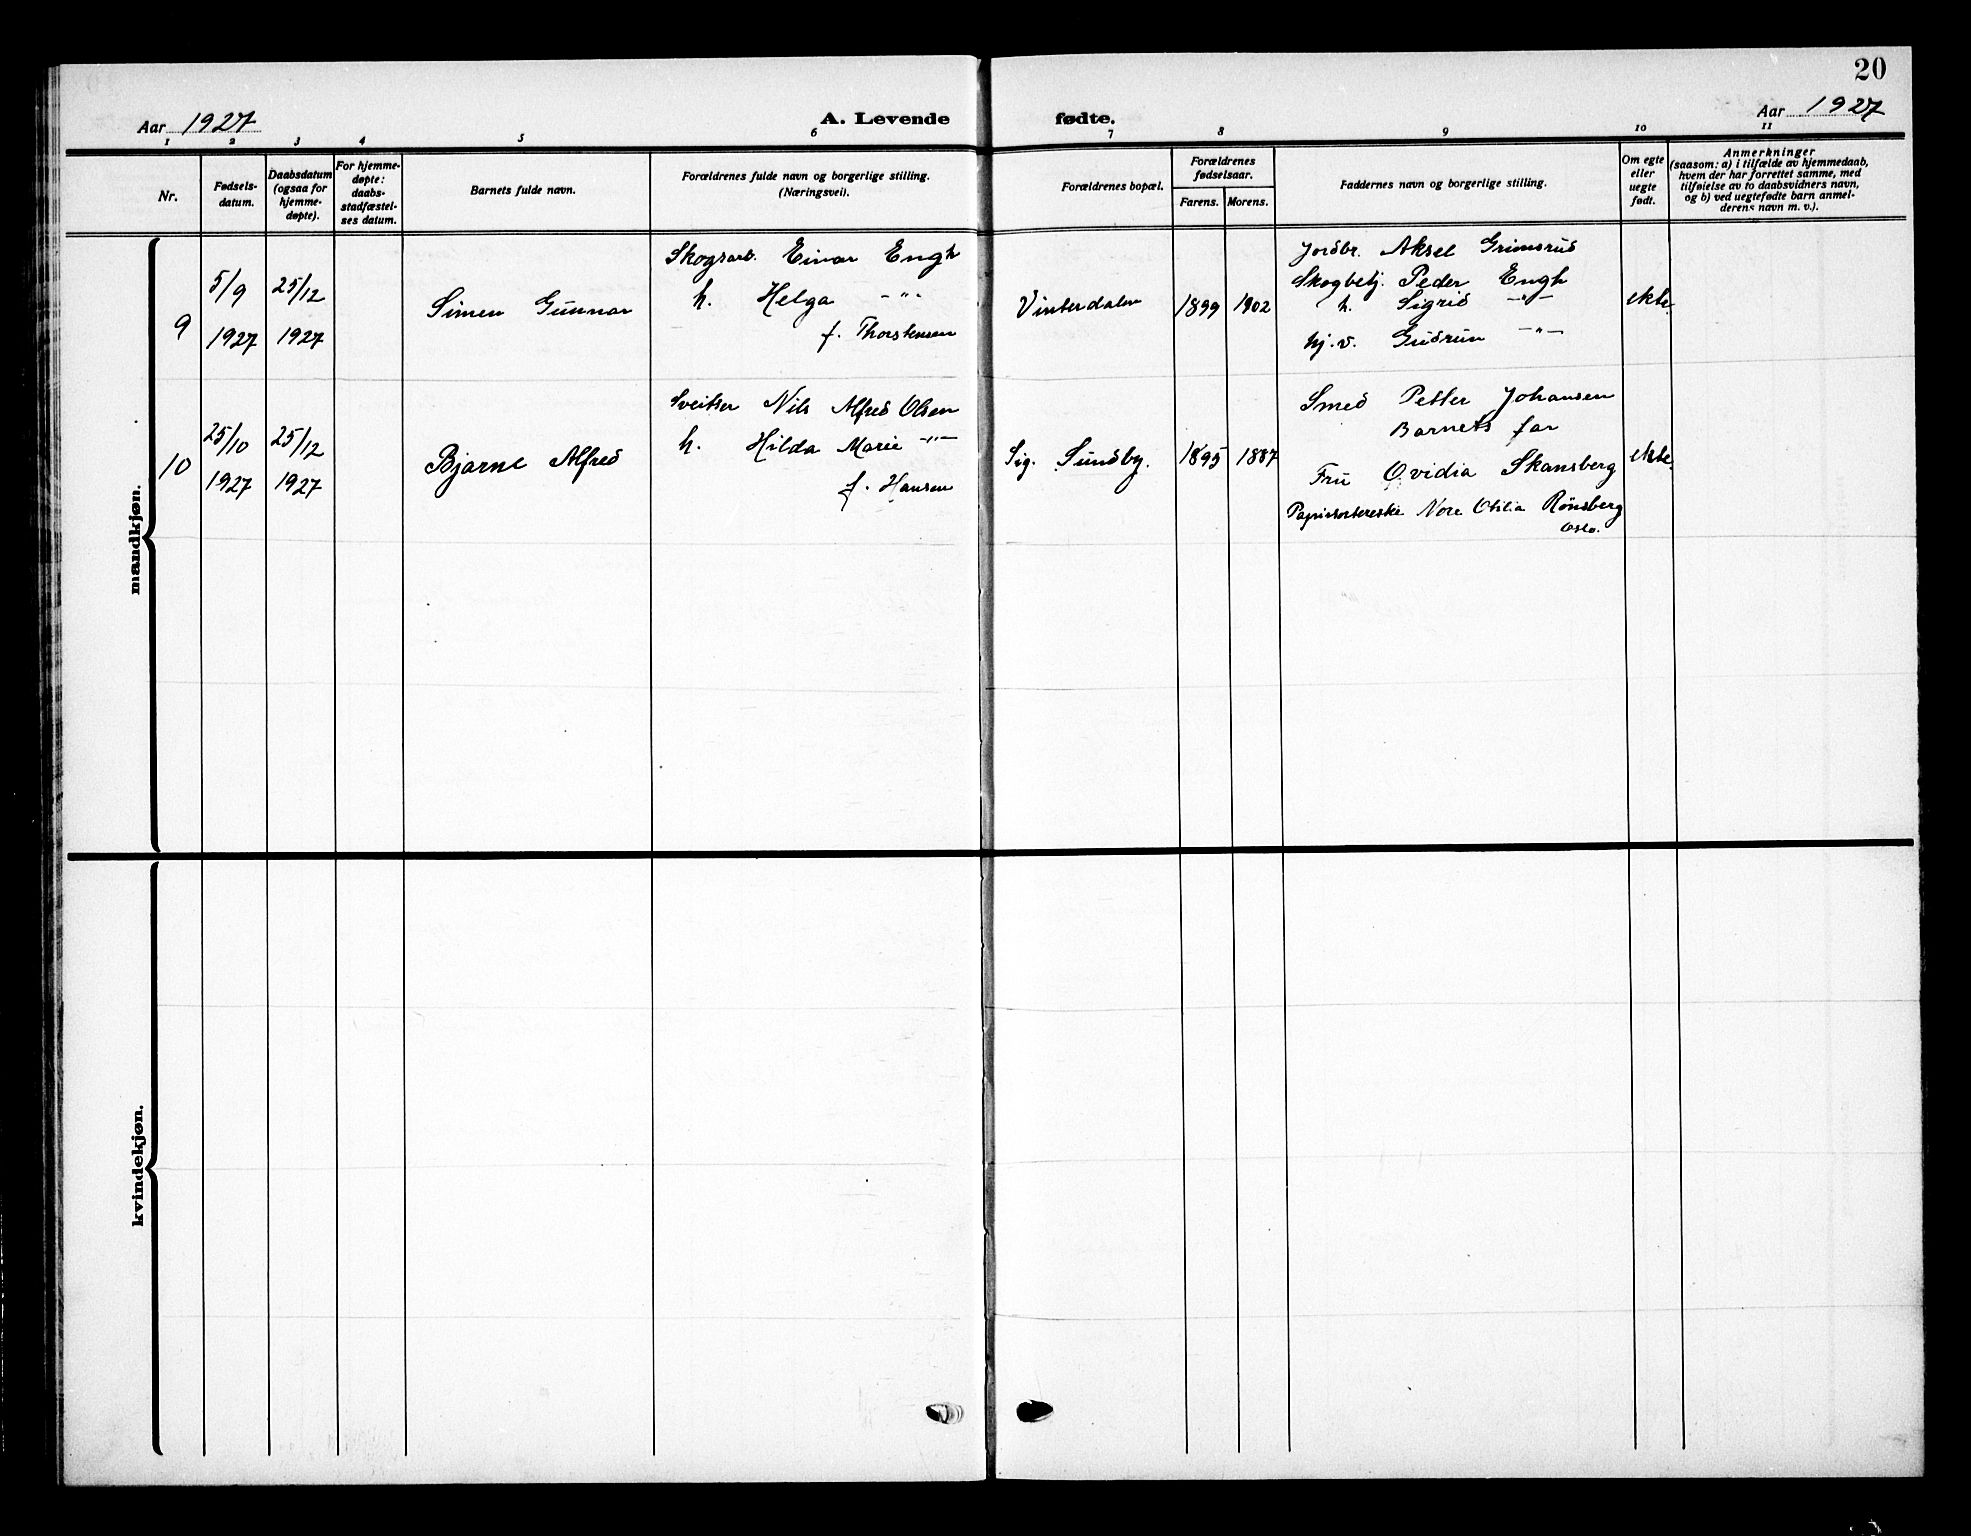 20
Aar 1927
A. Levende fødte.
Aar 1927
1 2 3 4 5 6 7 8 9 10 11
Nr.
Fødsels-
datum.
Daabsdatum
(ogsaa for
hjemme-
døpte).
For hjemme-
døpte:
daabs-
stadfæstel-
ses datum.
Barnets fulde navn.
Forældrenes fulde navn og borgerlige stilling.
(Næringsvei).
Forældrenes bopæl.
Forældrenes
fødselsaar.
Farens. Morens.
Faddernes navn og borgerlige stilling.
Om egte
eller
uegte
født.
Anmerkninger
(saasom: a) i tilfælde av hjemmedaab,
hvem der har forrettet samme, med
tilføielse av to daabsvidners navn,
og b) ved uegtefødte barn anmel-
derens navn m. v.).
mandkjøn.
9
5/9
1927
25/12
1927
Simen Gunnar
Skogsarb. Einar Engh
h. Helga -"-
f. Thorstensen
Vinterdalen
1899 1902
Jordbr. Aksel Grimsrud
Skogbetj. Peder Engh
h. Sigrid -"-
hj.v. Gudrun -"-
ekte.
10
25/10
1927
25/12
1927
Bjarne Alfred
Sveitser Nils Alfred Olsen
h. Hilda Marie -"-
f. Hansen
Sig. Sundby.
1895 1887
Smed Petter Johansen
Barnets far
Fru Ovidia Skansberg
Papirsorterske Otilia Rønsberg
Oslo.
ekte.
kvindekjøn.